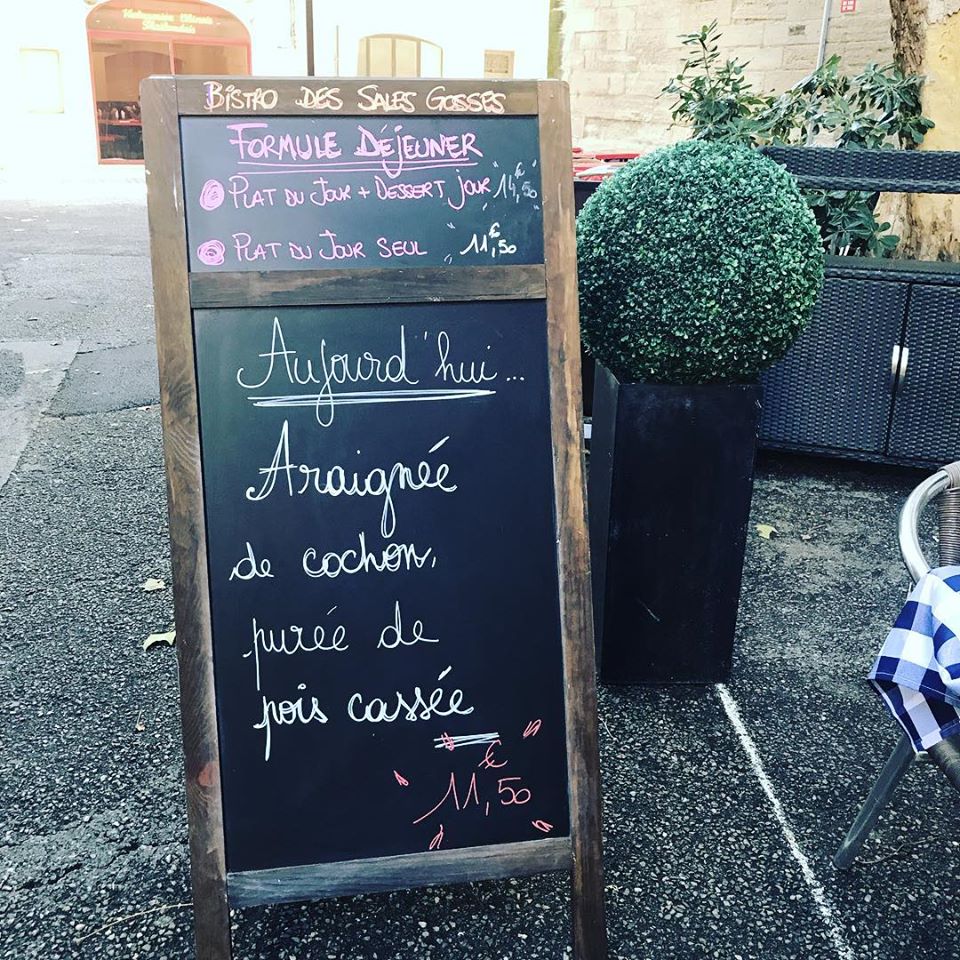 BISTRO DES SALES GOSSES
FORMULE DÉJEUNER
PLAT DU JOUR + DESSERT JOUR "14,50€"
PLAT DU JOUR SEUL "11,50€"
Aujourd'hui...
Araignée
de cochon,
purée de
pois cassée
11,50€